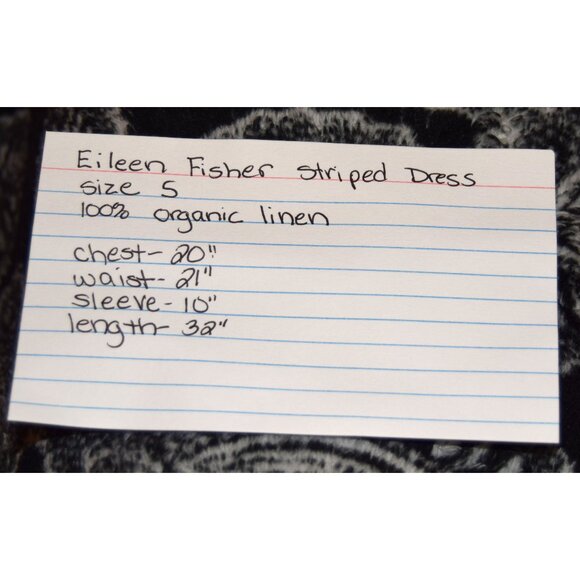 Eileen Fisher striped Dress
size S
100% organic linen
chest- 20"
waist- 21"
sleeve- 10"
length- 32"